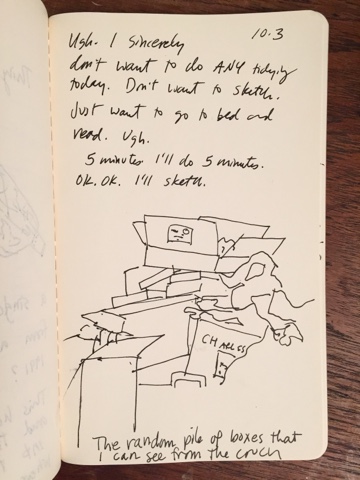 10.3
Ugh. I sincerely
don't want to do ANY tidying
today. Don't want to sketch.
Just want to go to bed and
read. Ugh.
5 minutes. I'll do 5 minutes.
OK. OK. I'll sketch.
CHARLES
The random pile of boxes that
I can see from the couch